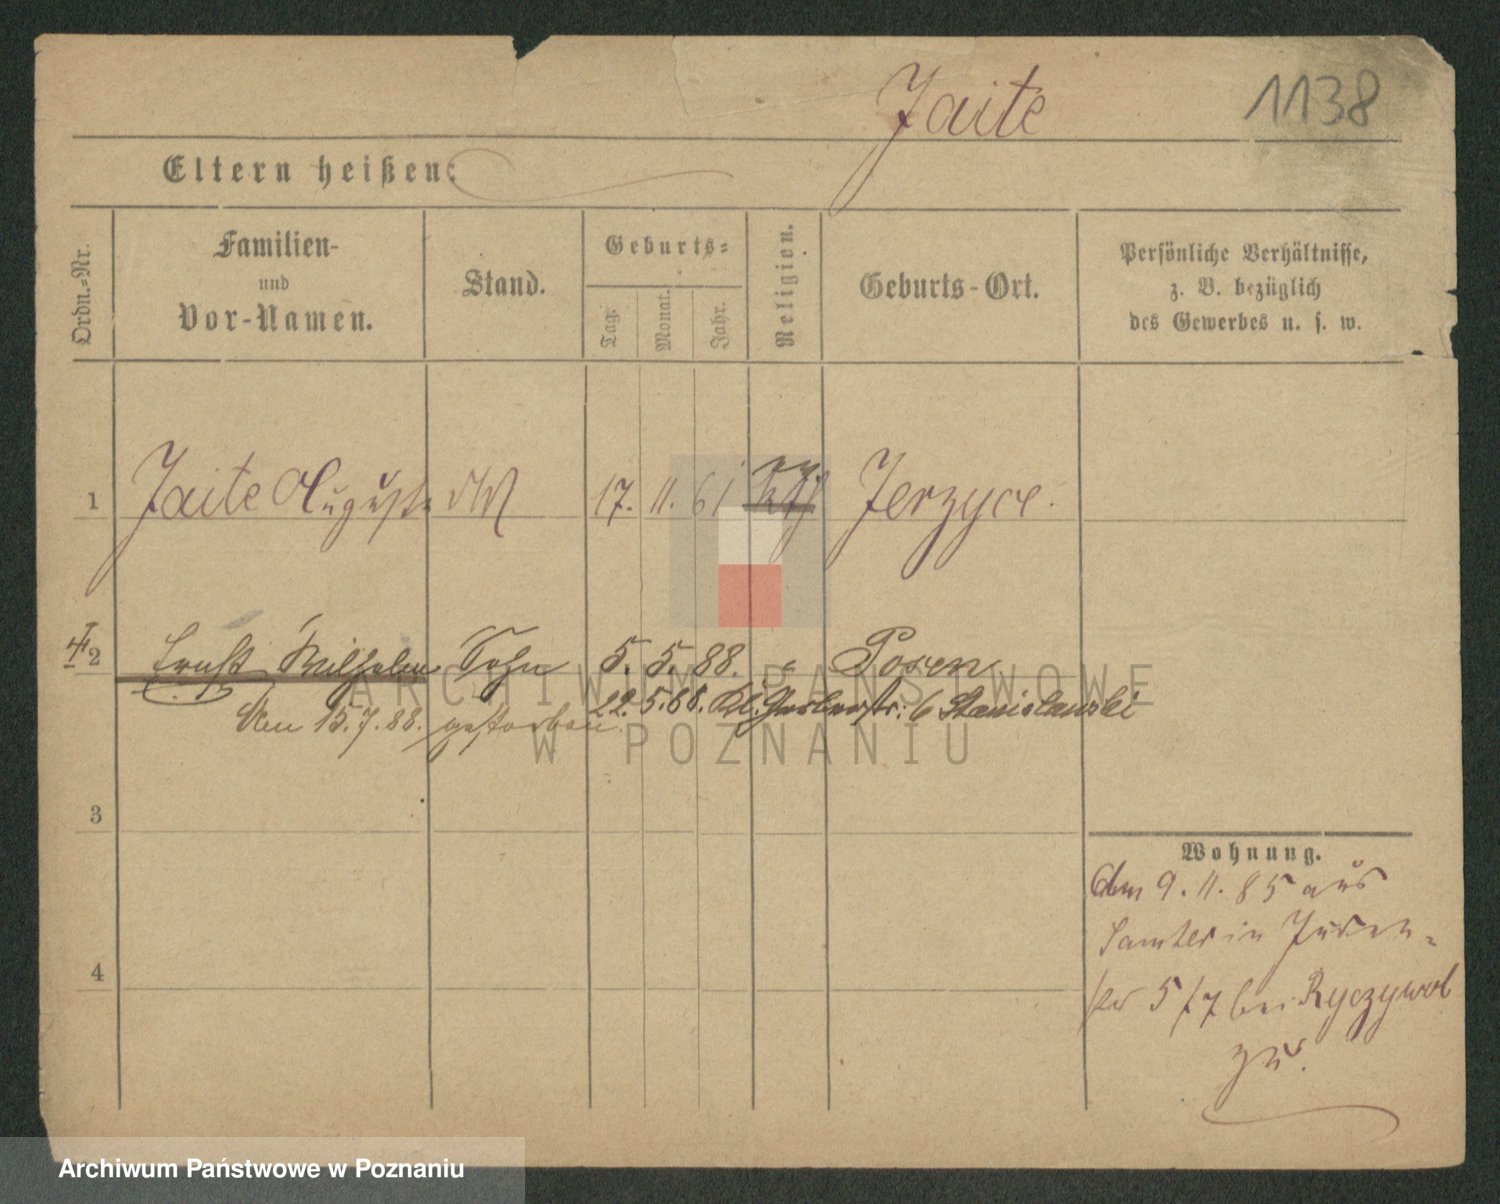 Jaite 1138
Eltern heißen:
Ordn.-Nr.
Familien-
und
Vor-Namen.
Stand.
Geburts-
Tag.
Monat.
Jahr.
Religion.
Geburts-Ort.
Persönliche Verhältnisse,
z. B. bezüglich
des Gewerbes u. s. w.
ev.
1 Jaite Auguste 17. 11. 61 Kath Jerzyce.
2 Ernst Wilhelm Sohn 5. 5. 88. " Posen
22. 5. 88. Kl. Gerberstr. 6 Stanislawski
Den 15.7.88. gestorben.
3
4
Wohnung.
dem 9. 11. 85 aus
Samter in
5/7 bei Ryczywol
zu.
ARCHIWUM PAŃSTWOWE
W POZNANIU
Archiwum Państwowe w Poznaniu